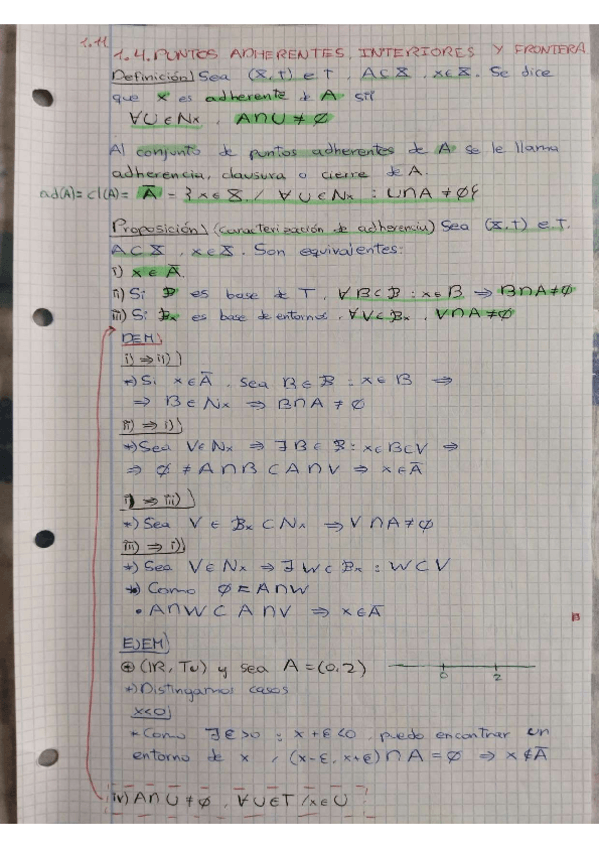 1.11
1.4. PUNTOS ADHERENTES, INTERIORES Y FRONTERA
Definición) Sea (X,T) e T, A⊂X, x∈X. Se dice
que x es adherente de A sii
∀U∈Nx, A∩U≠∅
Al conjunto de puntos adherentes de A se le llama
adherencia, clausura o cierre de A.
ad(A)=cl(A)= Ā = {x∈X / ∀U∈Nx : U∩A≠∅}
Proposición) (caracterización de adherencia) Sea (X,T) e.T.
A⊂X, x∈X. Son equivalentes:
i) x∈Ā.
ii) Si B es base de T, ∀B⊂B : x∈B ⇒ B∩A≠∅
iii) Si Bx es base de entornos, ∀V⊂Bx, V∩A≠∅
DEM)
i) ⇒ ii))
*) Si x∈Ā, sea B∈B : x∈B ⇒
⇒ B∈Nx ⇒ B∩A≠∅
ii) ⇒ i))
*) Sea V∈Nx ⇒ ∃B∈B : x∈B⊂V ⇒
⇒ ∅ ≠ A∩B ⊂ A∩V ⇒ x∈Ā
i) ⇒ iii))
*) Sea V ∈ Bx ⊂ Nx ⇒ V∩A≠∅
iii) ⇒ i))
*) Sea V∈Nx ⇒ ∃W⊂Bx : W⊂V
*) Como ∅≠A∩W
• A∩W ⊂ A∩V ⇒ x∈Ā
EJEM)
⊕ (IR, Tu) y sea A=(0,2)
0 2
*) Distingamos casos
x<0)
* Como ∃ε>0 : x+ε<0, puedo encontrar un
entorno de x / (x-ε, x+ε)∩A=∅ ⇒ x∉Ā
iv) A∩U≠∅, ∀U∈T / x∈U